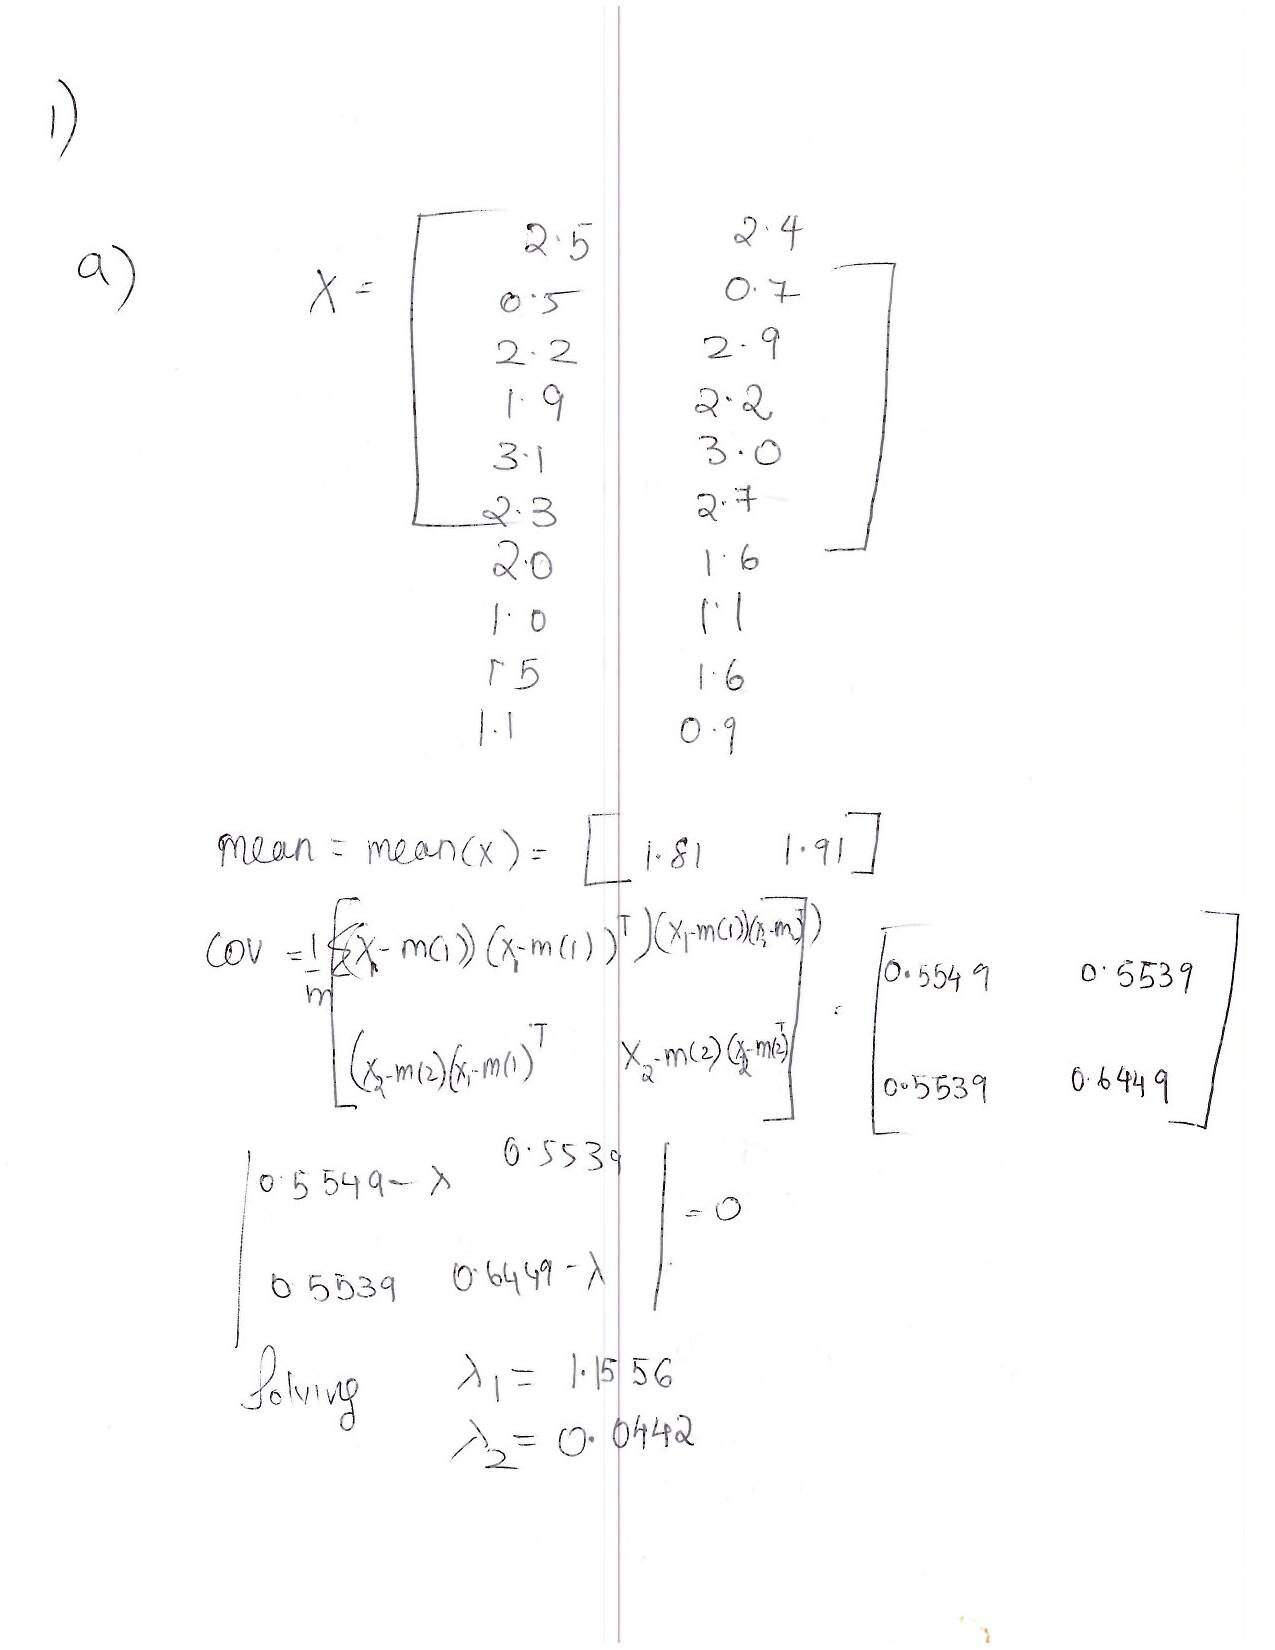 1)
a)
X = [ 2.5 2.4
0.5 0.7
2.2 2.9
1.9 2.2
3.1 3.0
2.3 2.7
2.0 1.6
1.0 1.1
1.5 1.6
1.1 0.9 ]
mean = mean(x) = [ 1.81 1.91 ]
COV = 1/m [ Σ(X₁ - m(1)) (x₁ - m(1))ᵀ) (x₁-m(1))(x₂-m₂)ᵀ) = [ 0.5549 0.5539
(x₂-m(2)(x₁-m(1)ᵀ X₂-m(2)(x₂-m(2)ᵀ ] 0.5539 0.6449 ]
| 0.5549 - λ 0.5539 | = 0
0.5539 0.6449 - λ |
Solving λ₁ = 1.1556
λ₂ = 0.0442